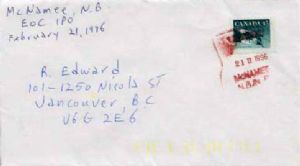 McNamee, N.B
EOC IPO
February 21, 1996
CANADA
R. Edward
101-1250 Nicola ST
Vancouver, B.C
V6G 2E6
21 II 1996
McNAMEE
N.B.